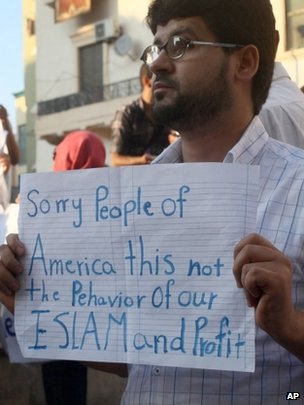 Sorry People of
America this not
the Pehavior of our
ESLAM and Profit
AP